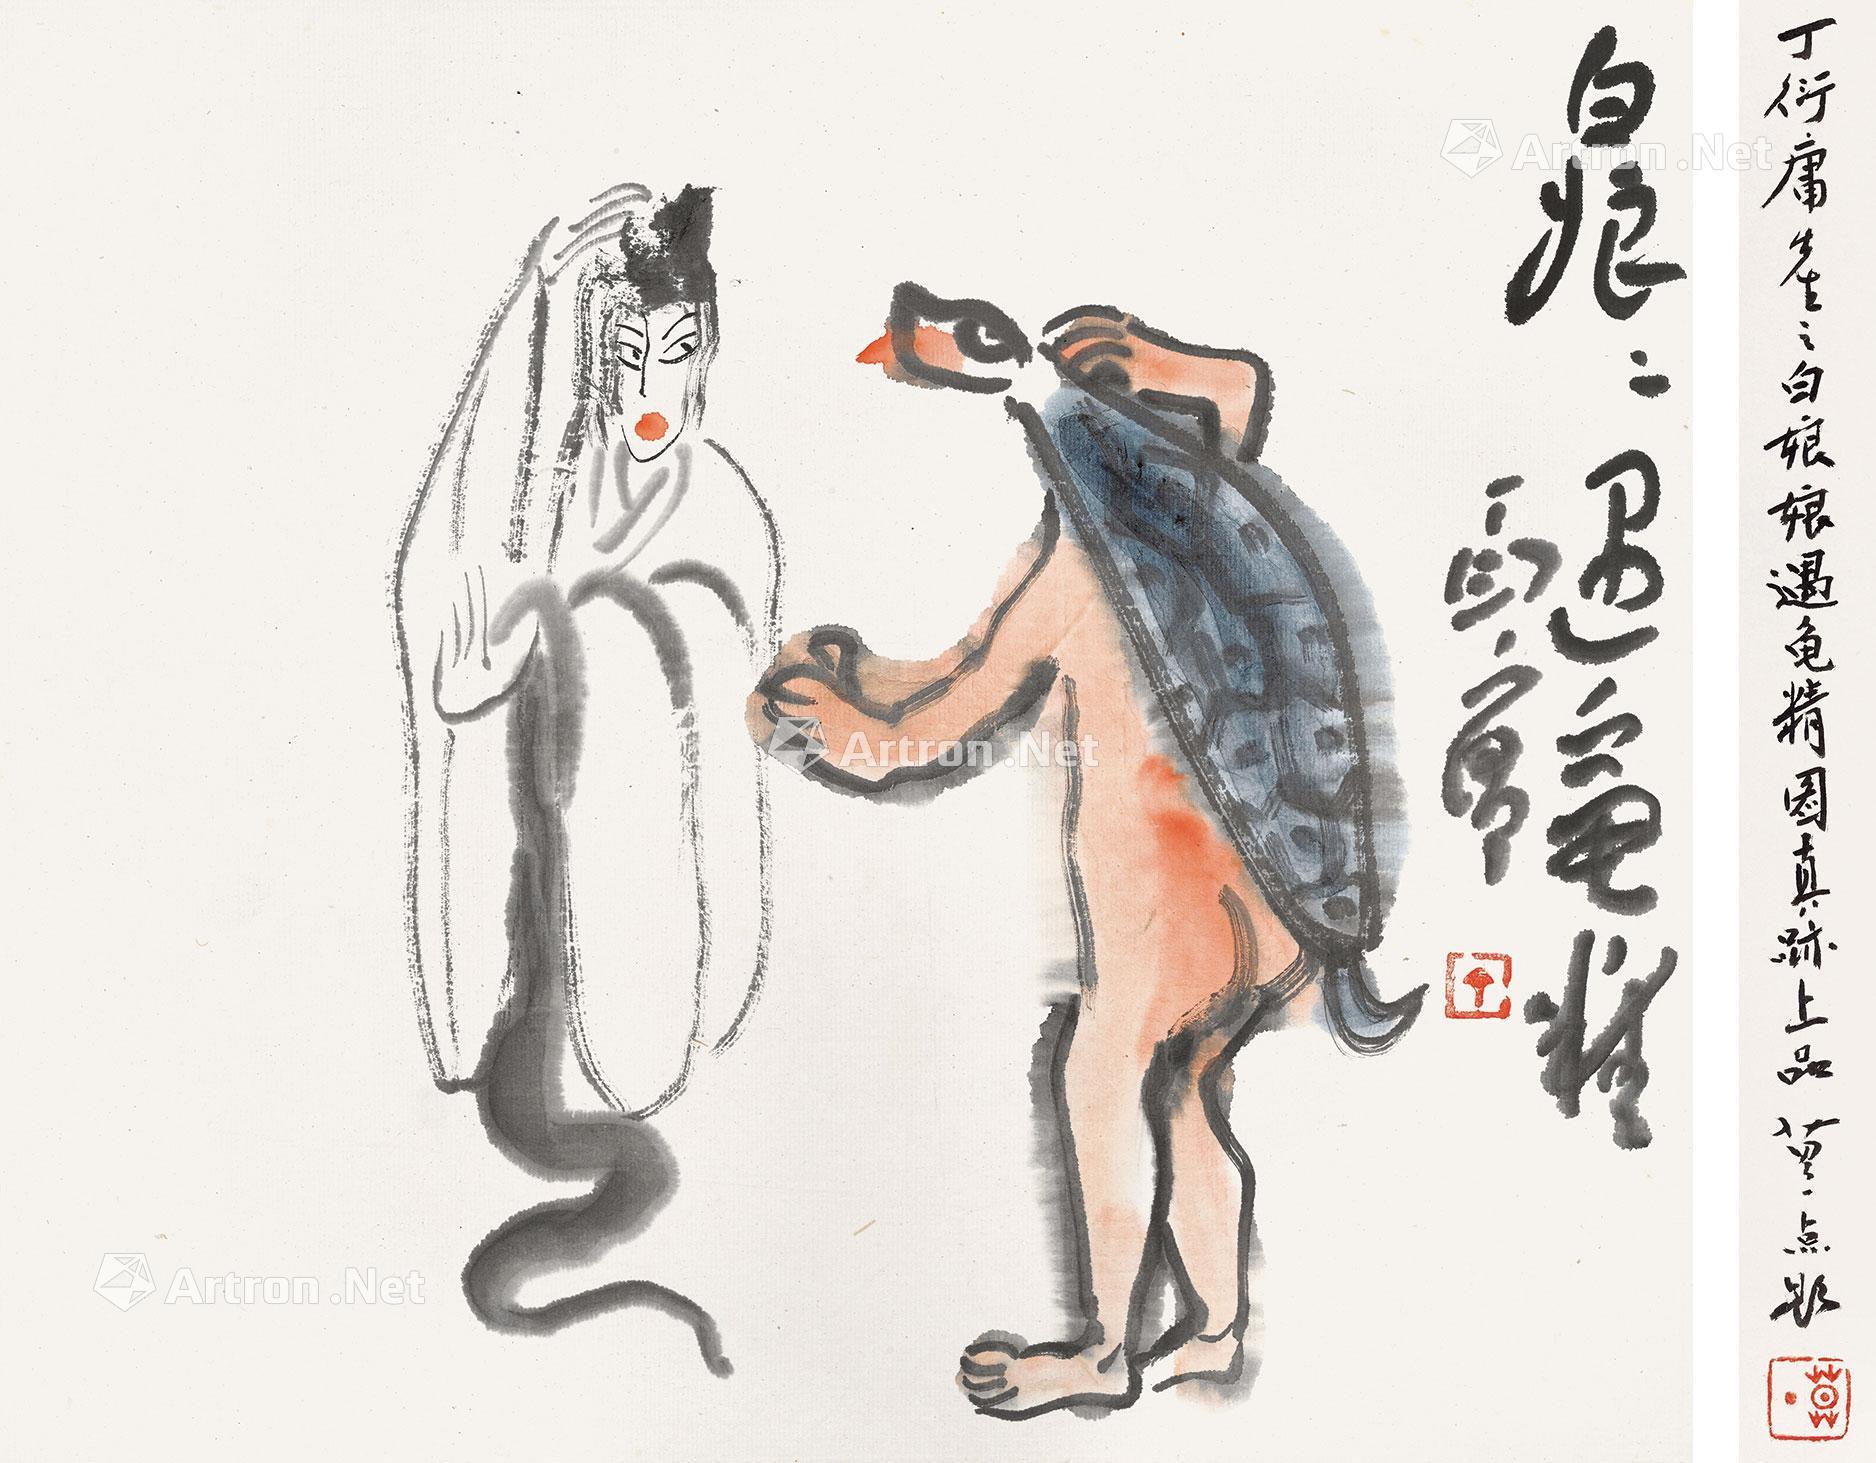 白娘〻遇龜精
丁衍庸
丁衍庸先生之白娘娘遇龟精图真跡上品 莫一点题
Artron.Net
Artron.Net
Artron.Net